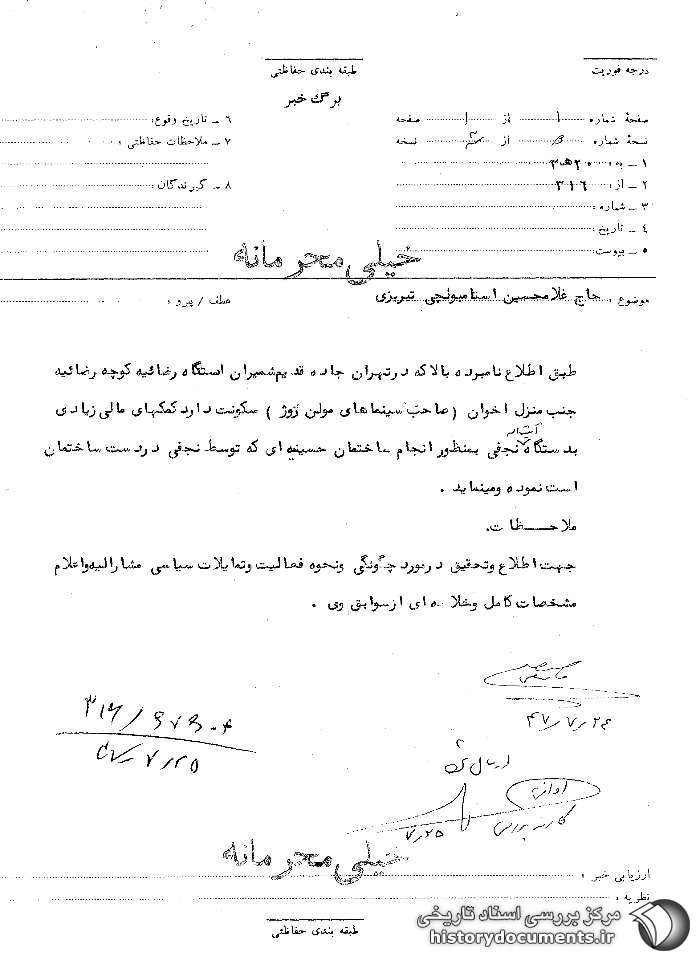 درجه فوریت
طبقه بندی حفاظتی
برگ خبر
صفحهٔ شماره ۱ از ۱ صفحه
نسخهٔ شماره از نسخه
۱ ــ به : ۳۵۲۰
۲ ــ از : ۳۱۶
۳ ــ شماره :
۴ ــ تاریخ :
۵ ــ پیوست :
۶ ــ تاریخ وقوع :
۷ ــ ملاحظات حفاظتی :
۸ ــ گیرندگان :
خیلی محرمانه
موضوع : حاج غلامحسین استامبولچی تبریزی
عطف / پیرو :
طبق اطلاع نامبرده بالا که در تهران جاده قدیم شمیران ایستگاه رضائیه کوچه رضائیه
جنب منزل اخوان ( صاحب سینماهای مولن روژ ) سکونت دارد کمکهای مالی زیادی
بدستگاه آیت‌اله نجفی بمنظور انجام ساختمان حسینیه‌ای که توسط نجفی در دست ساختمان
است نموده ومینماید .
ملاحـــظات .
جهت اطلاع وتحقیق در مورد چگونگی ونحوه فعالیت وتمایلات سیاسی مشارالیه واعلام
مشخصات کامل وخلاصه‌ای از سوابق وی .
۴۷/۷/۲۴
۳۱۶/
۴۷/۷/۲۵
ارسال
۷/۲۵
خیلی محرمانه
ارزیابی خبر :
نظریه :
طبقه بندی حفاظتی
مرکز بررسی اسناد تاریخی
historydocuments.ir